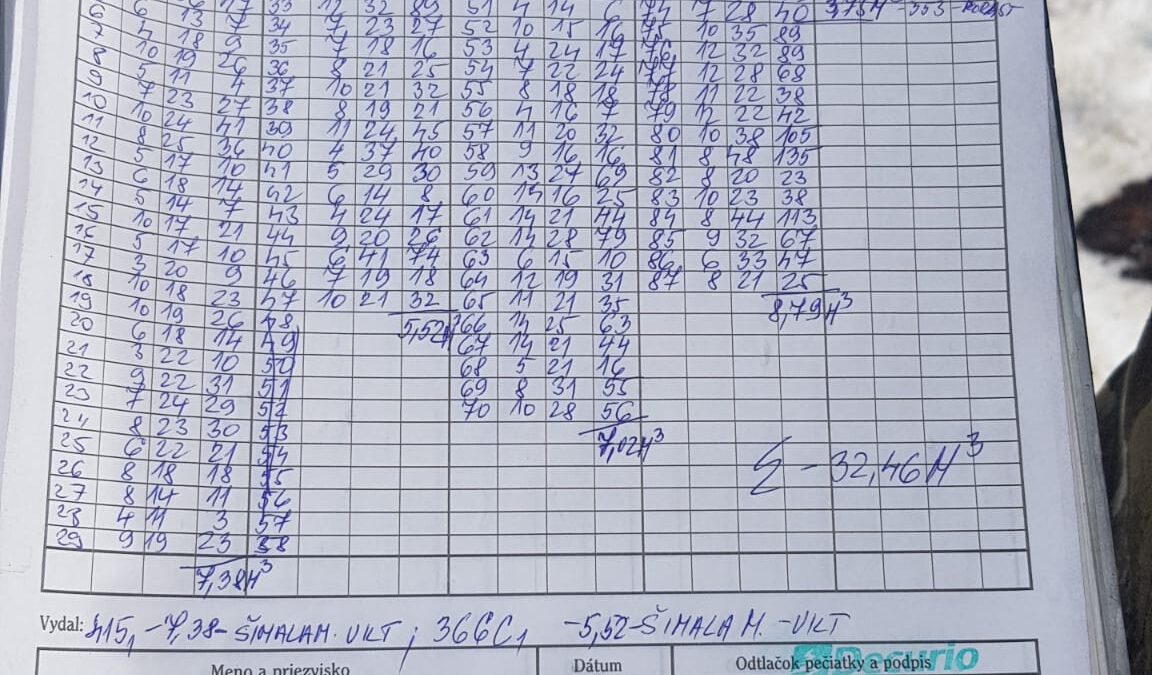 6 6 17 33 12 32 89 51 4 14 6 74 7 28 40
7 4 13 7 34 7 23 27 52 10 15 16 75 10 35 89
8 10 18 9 35 7 18 16 53 4 24 17 76 12 32 89
9 5 19 26 36 8 21 25 54 7 22 24 77 12 28 68
10 7 11 4 37 10 21 32 55 8 18 18 78 11 22 38
11 10 23 27 38 8 19 21 56 4 16 7 79 12 22 42
12 8 24 41 39 11 24 45 57 11 20 32 80 10 38 105
13 5 25 36 40 4 37 40 58 9 16 16 81 8 48 135
14 6 17 10 41 5 29 30 59 13 27 69 82 8 20 23
15 5 18 14 42 6 14 8 60 14 16 25 83 10 23 38
16 10 14 7 43 4 24 17 61 14 21 44 84 8 44 113
17 5 17 21 44 9 20 26 62 14 28 79 85 9 32 67
18 3 17 10 45 6 41 74 63 6 15 10 86 6 33 47
19 10 20 9 46 7 19 18 64 12 19 31 87 8 21 25
20 10 18 23 47 10 21 32 65 11 21 35 8,79M³
21 6 19 26 48 5,52M³ 66 14 25 63
22 3 18 14 49 67 14 21 44
23 9 22 10 50 68 5 21 16
24 7 22 31 51 69 8 31 55
25 8 24 29 52 70 10 28 56
26 6 23 30 53 7,02M³
27 8 22 21 54 Σ - 32,46M³
28 8 18 18 55
29 4 14 11 56
9 11 3 57
19 23 58
7,38M³
Vydal: 415, -7,38- ŠIMALA M. UKT ; 366C, -5,52-ŠIMALA M. -UKT
Meno a priezvisko Dátum Odtlačok pečiatky a podpis
Decurio